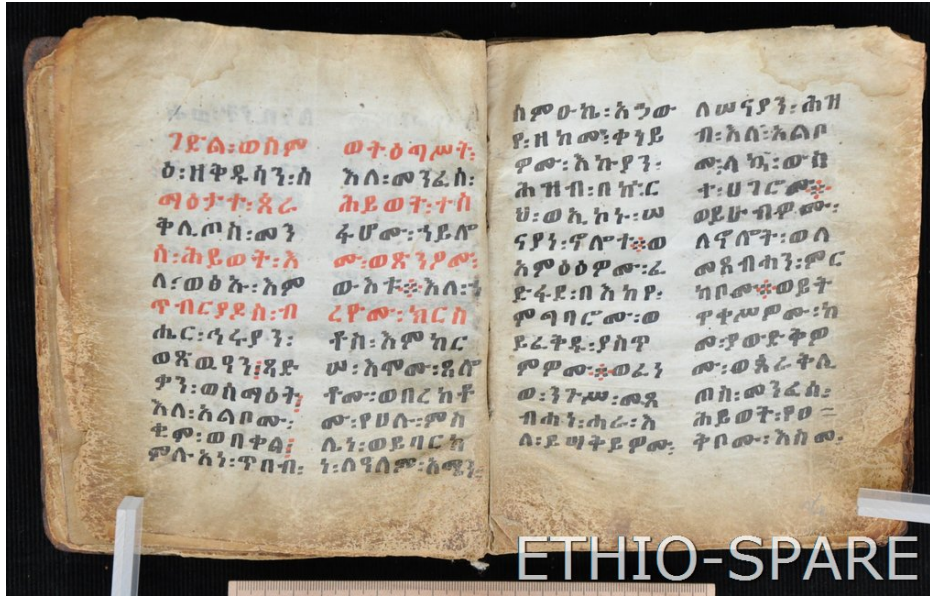 ገድል፡ወስም
ዕ፡ዘቅዱሳን፡ስ
ማዕታተ፡ጰራ
ቅሊጦስ፡መን
ስ፡ሕይወት፡እ
ለ፡ወፅኡ፡እም
ጥብርያዶስ፡ብ
ሔር፡ኅሩያን፡
ወጸዉዓን፡ጻድ
ቃን፡ወሰማዕት፡
እለ፡አልቦሙ፡
ቂም፡ወበቀል፡
ምሉአነ፡ጥበብ፡
ወትዕግሥት፡
እለ፡መንፈስ፡
ሕይወት፡ተስ
ፋሆሙ፡ኀይሎ
ሙ፡ወጽንዖሙ፡
ውእቱ፨እለ፡
ረዮሙ፡ክርስ
ቶስ፡እምከር
ሠ፡እሞሙ፡ደሎ
ቶሙ፡ወበረከቶ
ሙ፡የሀሉ፡ምስ
ሌነ፡ወይባርከ
ነ፡ለዓለም፡አሜን፡
ስምዑኬ፡አኃው
የ፡ዘከመ፡ቀንይ
ዎሙ፡እኩያን፡
ሕዝብ፡በኵር
ህ፡ወኢኮኑ፡ሠ
ናያነ፡ኖሎተ፨ወ
አምዕዕዎሙ፡ፈ
ድፋደ፡በእከየ፡
ምግባሮሙ፡ወ
ይፈቅዱ፡ያስጥ
ምዎሙ፨ወፈነ
ወ፡ንጉሥ፡መጸ
ብሓነ፡ሓራ፡እ
ለ፡ይሣቅይዎሙ፡
ለሠናያን፡ሕዝ
ብ፡እለ፡አልቦ
ሙ፡ላኳ፡ውስ
ተ፡ሀገሮሙ፨
ወይሁብዎሙ፡
ለኖሎት፡ወለ
መጸብሓን፡ምር
ካቦሙ፨ወይት
ጥቂሥዎሙ፡ከ
መ፡ያውድቅዎ
ሙ፡ወጰራቅሊ
ጦስ፡መንፈሰ፡
ሕይወት፡የዐ
ቅቦሙ፡እስመ፡
ETHIO-SPARE